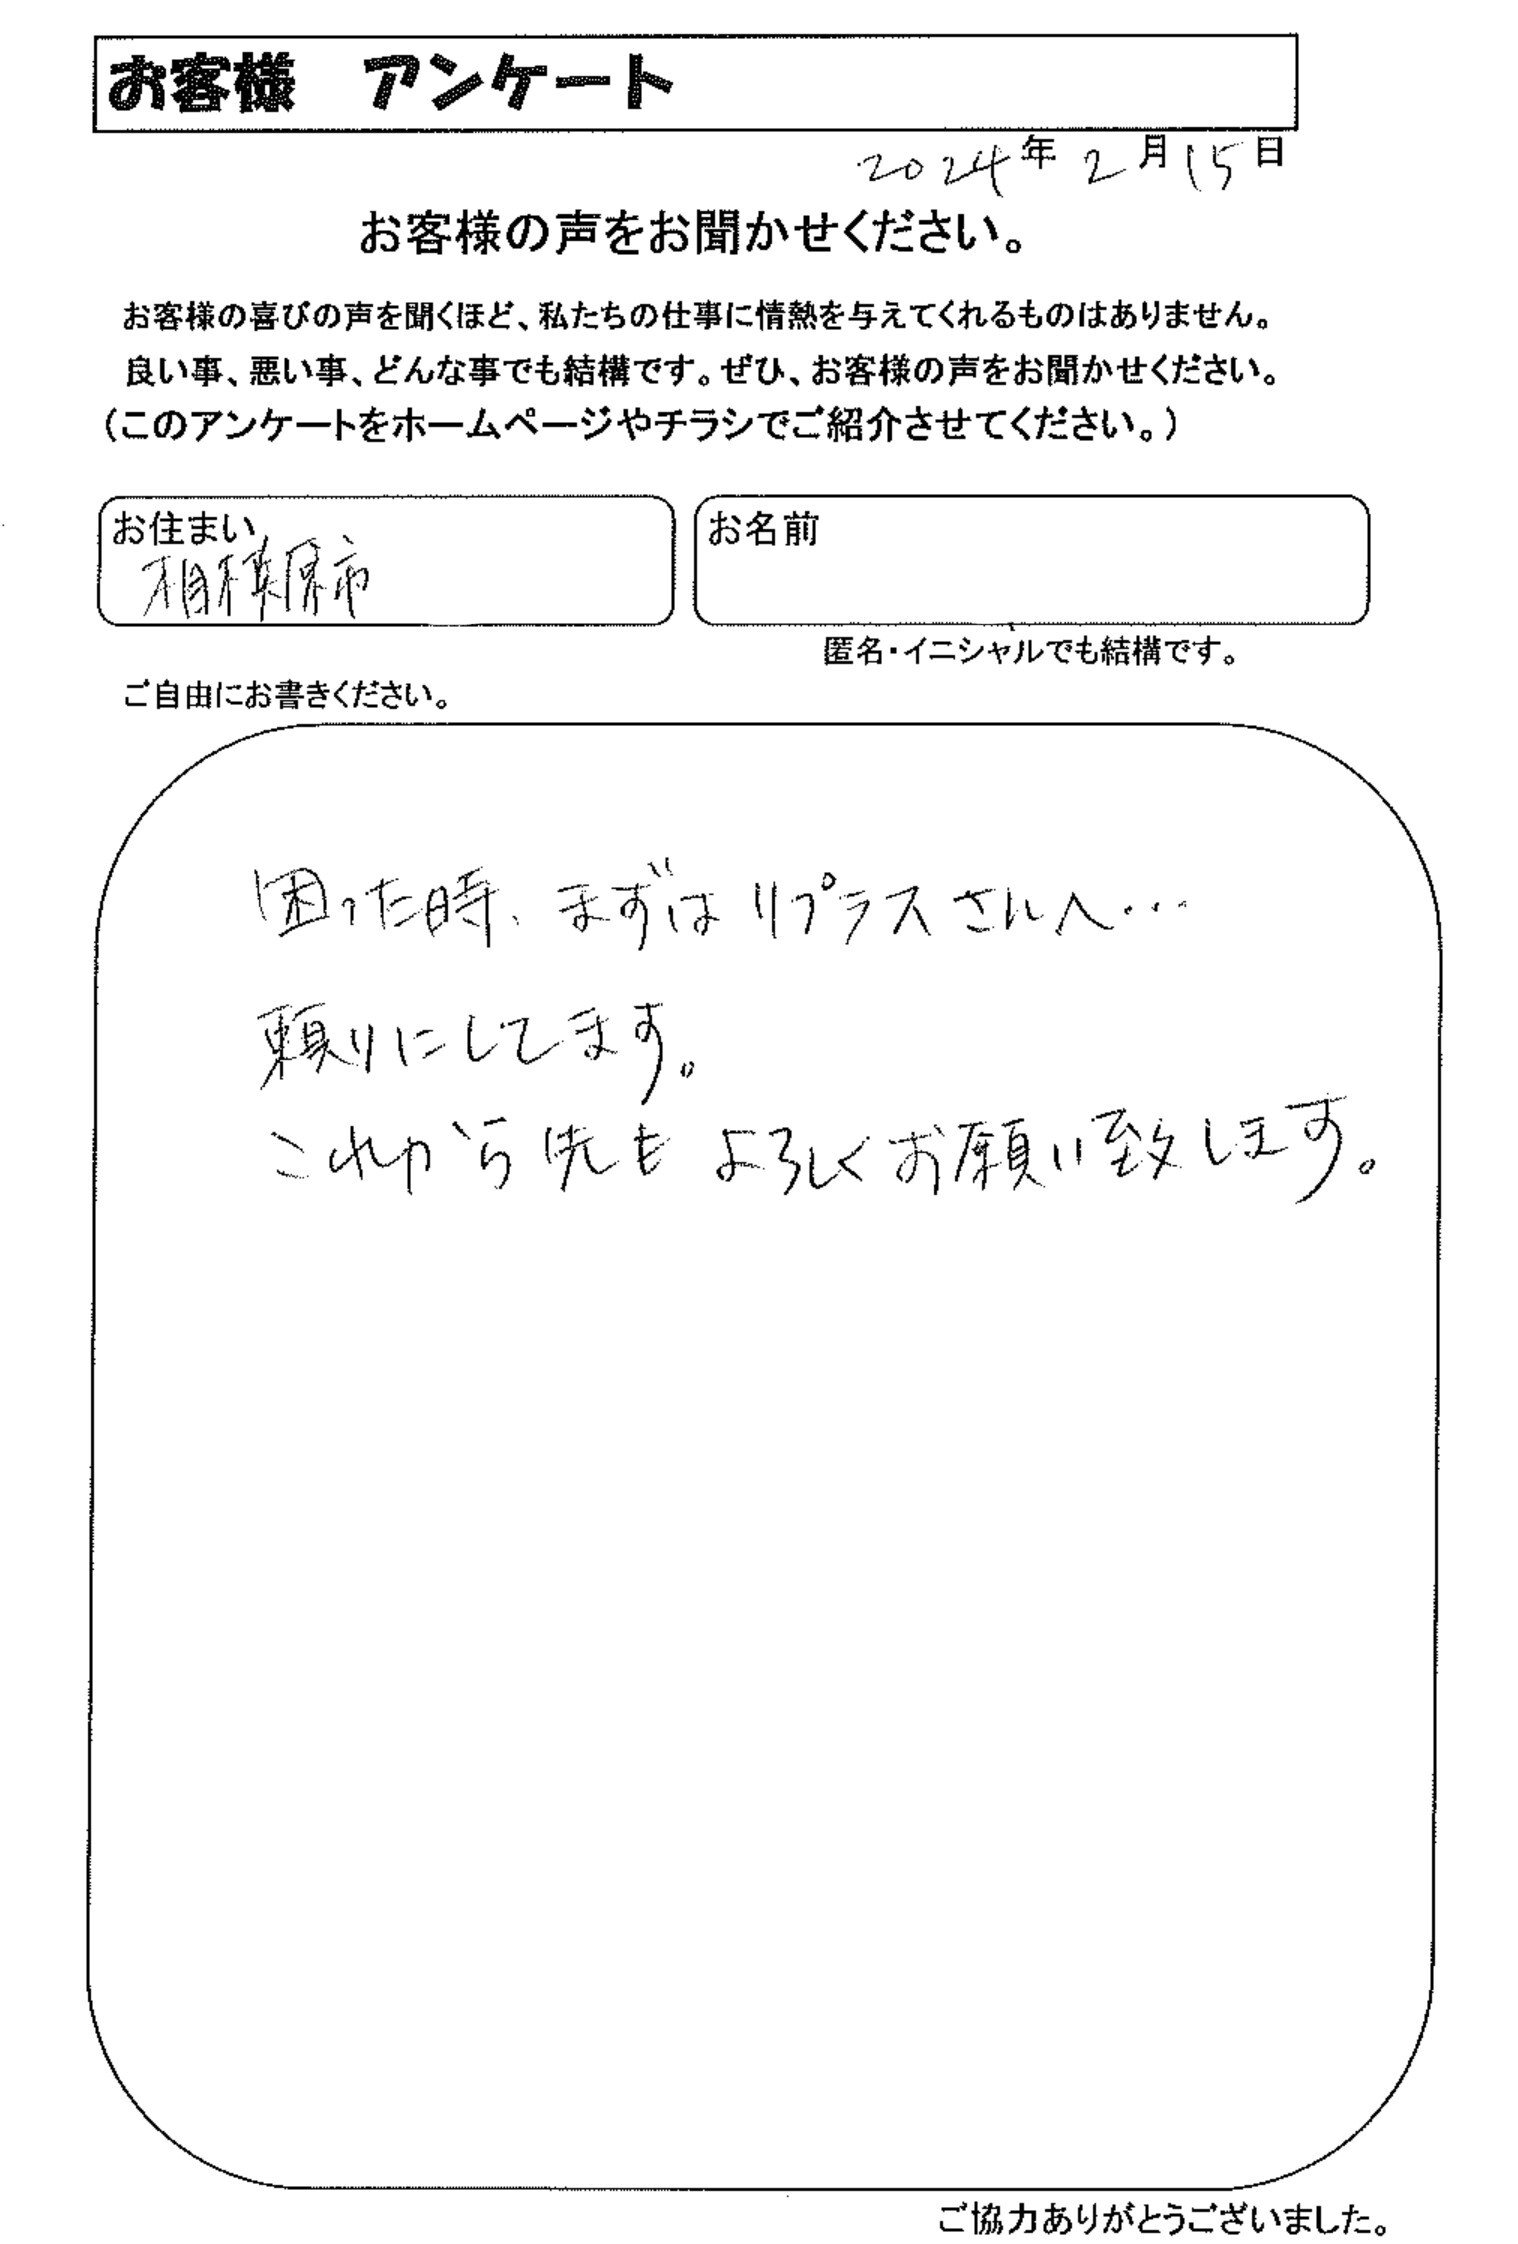 お客様　アンケート
2024年2月15日
お客様の声をお聞かせください。
お客様の喜びの声を聞くほど、私たちの仕事に情熱を与えてくれるものはありません。
良い事、悪い事、どんな事でも結構です。ぜひ、お客様の声をお聞かせください。
（このアンケートをホームページやチラシでご紹介させてください。）
お住まい
相模原市
お名前
匿名・イニシャルでも結構です。
ご自由にお書きください。
困った時、まずはリプラスさんへ…
頼りにしてます。
これから先もよろしくお願い致します。
ご協力ありがとうございました。